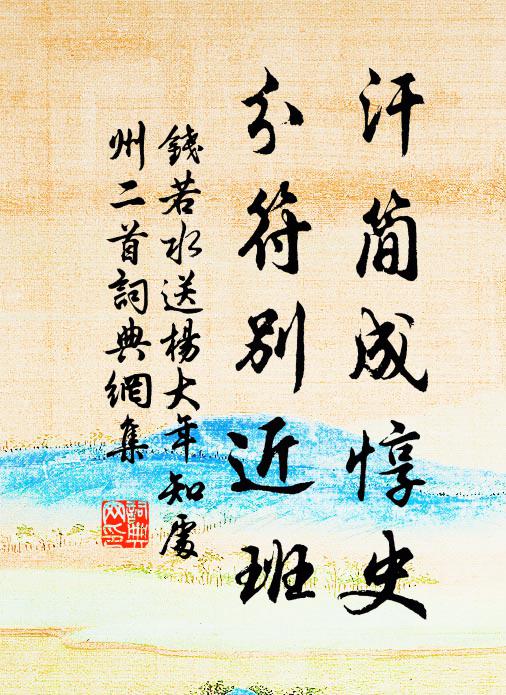 汗简成惇史
分符别近班
錢若水送楊大年知處
州二首詞典網集
詞典网印